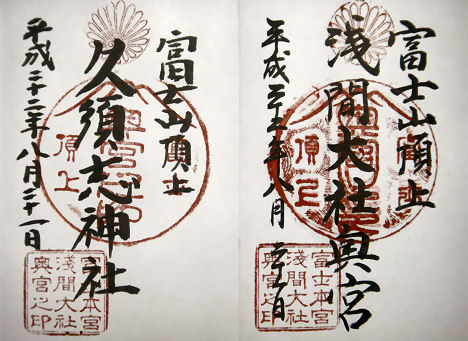 富士山頂上
浅間大社奥宮
平成二十二年八月二十一日
頂上
富士本宮
浅間大社
奥宮之印
富士山頂上
久須志神社
平成二十二年八月二十一日
頂上
富士本宮
浅間大社
奥宮之印